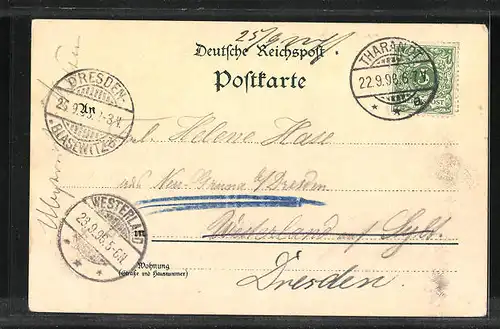 25/9
Deutsche Reichspost
Postkarte
THARANDT
22.9.98.6-7N
a
DRESDEN-
BLASEWITZ
An
Frl. Helene Hase
aus Neu-Gruna b/Dresden
Westerland auf Sylt.
WESTERLAND
23.9.98.5-6N
Wohnung
(Straße und Hausnummer)
Dresden